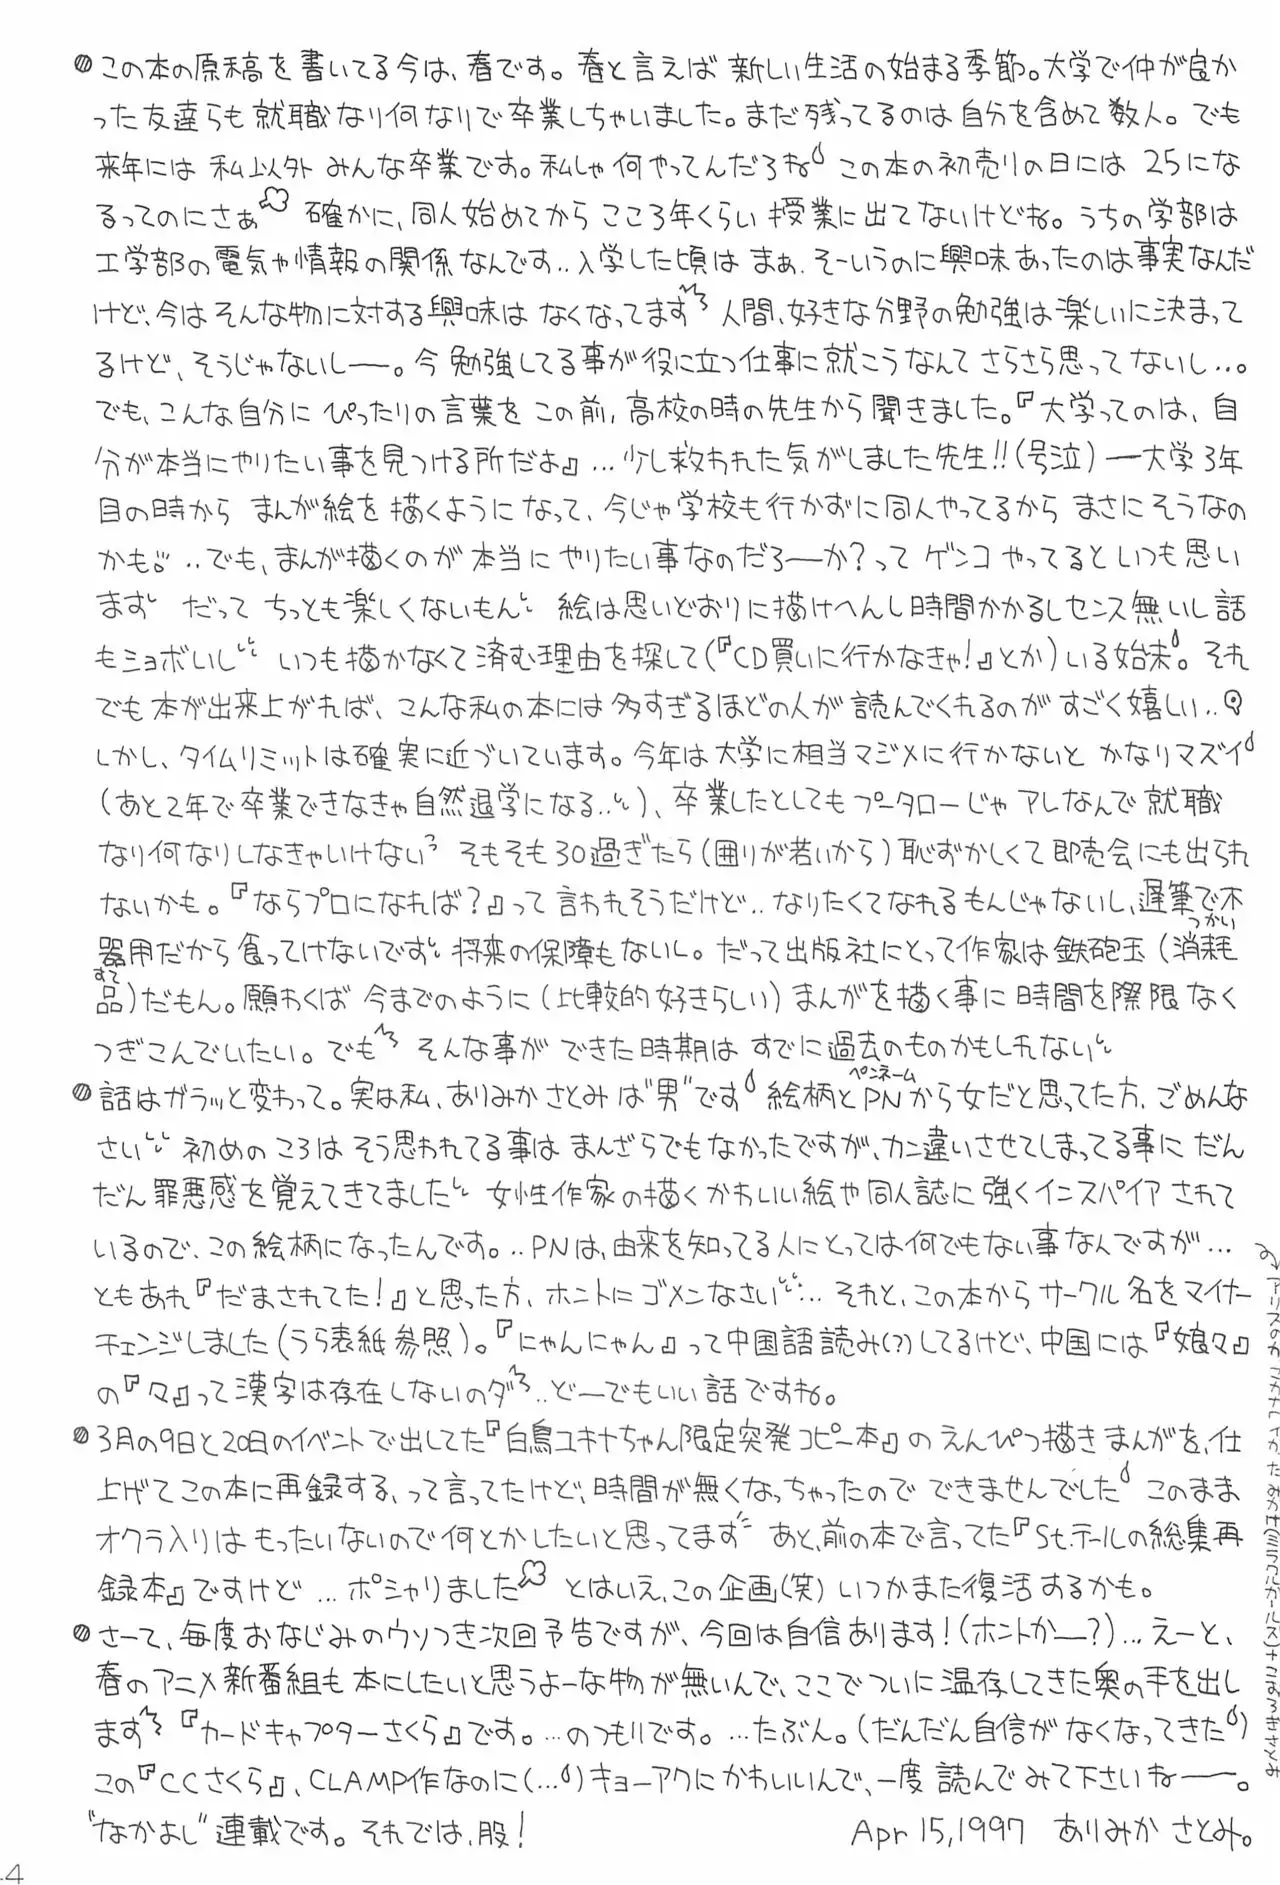 この本の原稿を書いてる今は、春です。春と言えば新しい生活の始まる季節。大学で仲が良か
った友達らも就職なり何なりで卒業しちゃいました。まだ残ってるのは自分を含めて数人。でも
来年には私以外みんな卒業です。私しゃ何やってんだろね この本の初売りの日には25にな
るってのにさぁ 確かに、同人始めてからここ3年くらい授業に出てないけどね。うちの学部は
工学部の電気や情報の関係なんです‥入学した頃はまぁ、そーいうのに興味あったのは事実なんだ
けど、今はそんな物に対する興味はなくなってます 人間、好きな分野の勉強は楽しいに決まって
るけど、そうじゃないしー。今勉強してる事が役に立つ仕事に就こうなんてさらさら思ってないし…。
でも、こんな自分にぴったりの言葉をこの前、高校の時の先生から聞きました。『大学ってのは、自
分が本当にやりたい事を見つける所だよ』…少し救われた気がしました先生!!(号泣)―大学3年
目の時からまんが絵を描くようになって、今じゃ学校も行かずに同人やってるからまさにそうなの
かも ‥でも、まんが描くのが本当にやりたい事なのだろーか?ってゲンコやってるといつも思い
ます だってちっとも楽しくないもん 絵は思いどおりに描けへんし時間かかるしセンス無いし話
もショボいし いつも描かなくて済む理由を探して(『CD買いに行かなきゃ!』とか)いる始末。それ
でも本が出来上がれば、こんな私の本には多すぎるほどの人が読んでくれるのがすごく嬉しい‥
しかし、タイムリミットは確実に近づいています。今年は大学に相当マジメに行かないとかなりマズイ
(あと2年で卒業できなきゃ自然退学になる‥)、卒業したとしてもプータローじゃアレなんで就職
なり何なりしなきゃいけない そもそも30過ぎたら(囲りが若いから)恥ずかしくて即売会にも出られ
ないかも。『ならプロになれば?』って言われそうだけど‥なりたくてなれるもんじゃないし、遅筆で不
器用だから食ってけないです 将来の保障もないし。だって出版社にとって作家は鉄砲玉(消耗
つかい
品)だもん。願わくば今までのように(比較的好きらしい)まんがを描く事に時間を際限なく
すて
つぎこんでいたい。でも そんな事ができた時期はすでに過去のものかもしれない
話はガラッと変わって。実は私、ありみかさとみは"男"です 絵柄とPNから女だと思ってた方、ごめんな
ペンネーム
さい 初めのころはそう思われてる事はまんざらでもなかったですが、カン違いさせてしまってる事にだん
だん罪悪感を覚えてきてました 女性作家の描くかわいい絵や同人誌に強くインスパイアされて
いるので、この絵柄になったんです。‥PNは、由来を知ってる人にとっては何でもない事なんですが…
ともあれ『だまされてた!』と思った方、ホントにゴメンなさい… それと、この本からサークル名をマイナー
チェンジしました(うら表紙参照)。『にゃんにゃん』って中国語読み(?)してるけど、中国には『娘々』
の『々』って漢字は存在しないのダ‥どーでもいい話ですね。
3月の9日と20日のイベントで出してた『白鳥ユキナちゃん限定突発コピー本』のえんぴつ描きまんがを、仕
上げてこの本に再録する、って言ってたけど、時間が無くなっちゃったのでできませんでした このまま
オクラ入りはもったいないので何とかしたいと思ってます あと、前の本で言ってた『St.テールの総集再
録本』ですけど…ポシャりました とはいえ、この企画(笑)いつかまた復活するかも。
さーて、毎度おなじみのウソつき次回予告ですが、今回は自信あります!(ホントかー?)…えーと、
春のアニメ新番組も本にしたいと思うよーな物が無いんで、ここでついに温存してきた奥の手を出し
ます 『カードキャプターさくら』です。…のつもりです。…たぶん。(だんだん自信がなくなってきた)
この『CCさくら』、CLAMP作なのに(…)キョーアクにかわいいんで、一度読んでみて下さいねー。
"なかよし"連載です。それでは、股!
Apr 15,1997 ありみかさとみ。
(ミラクルガールズ)+こおろぎさとみ